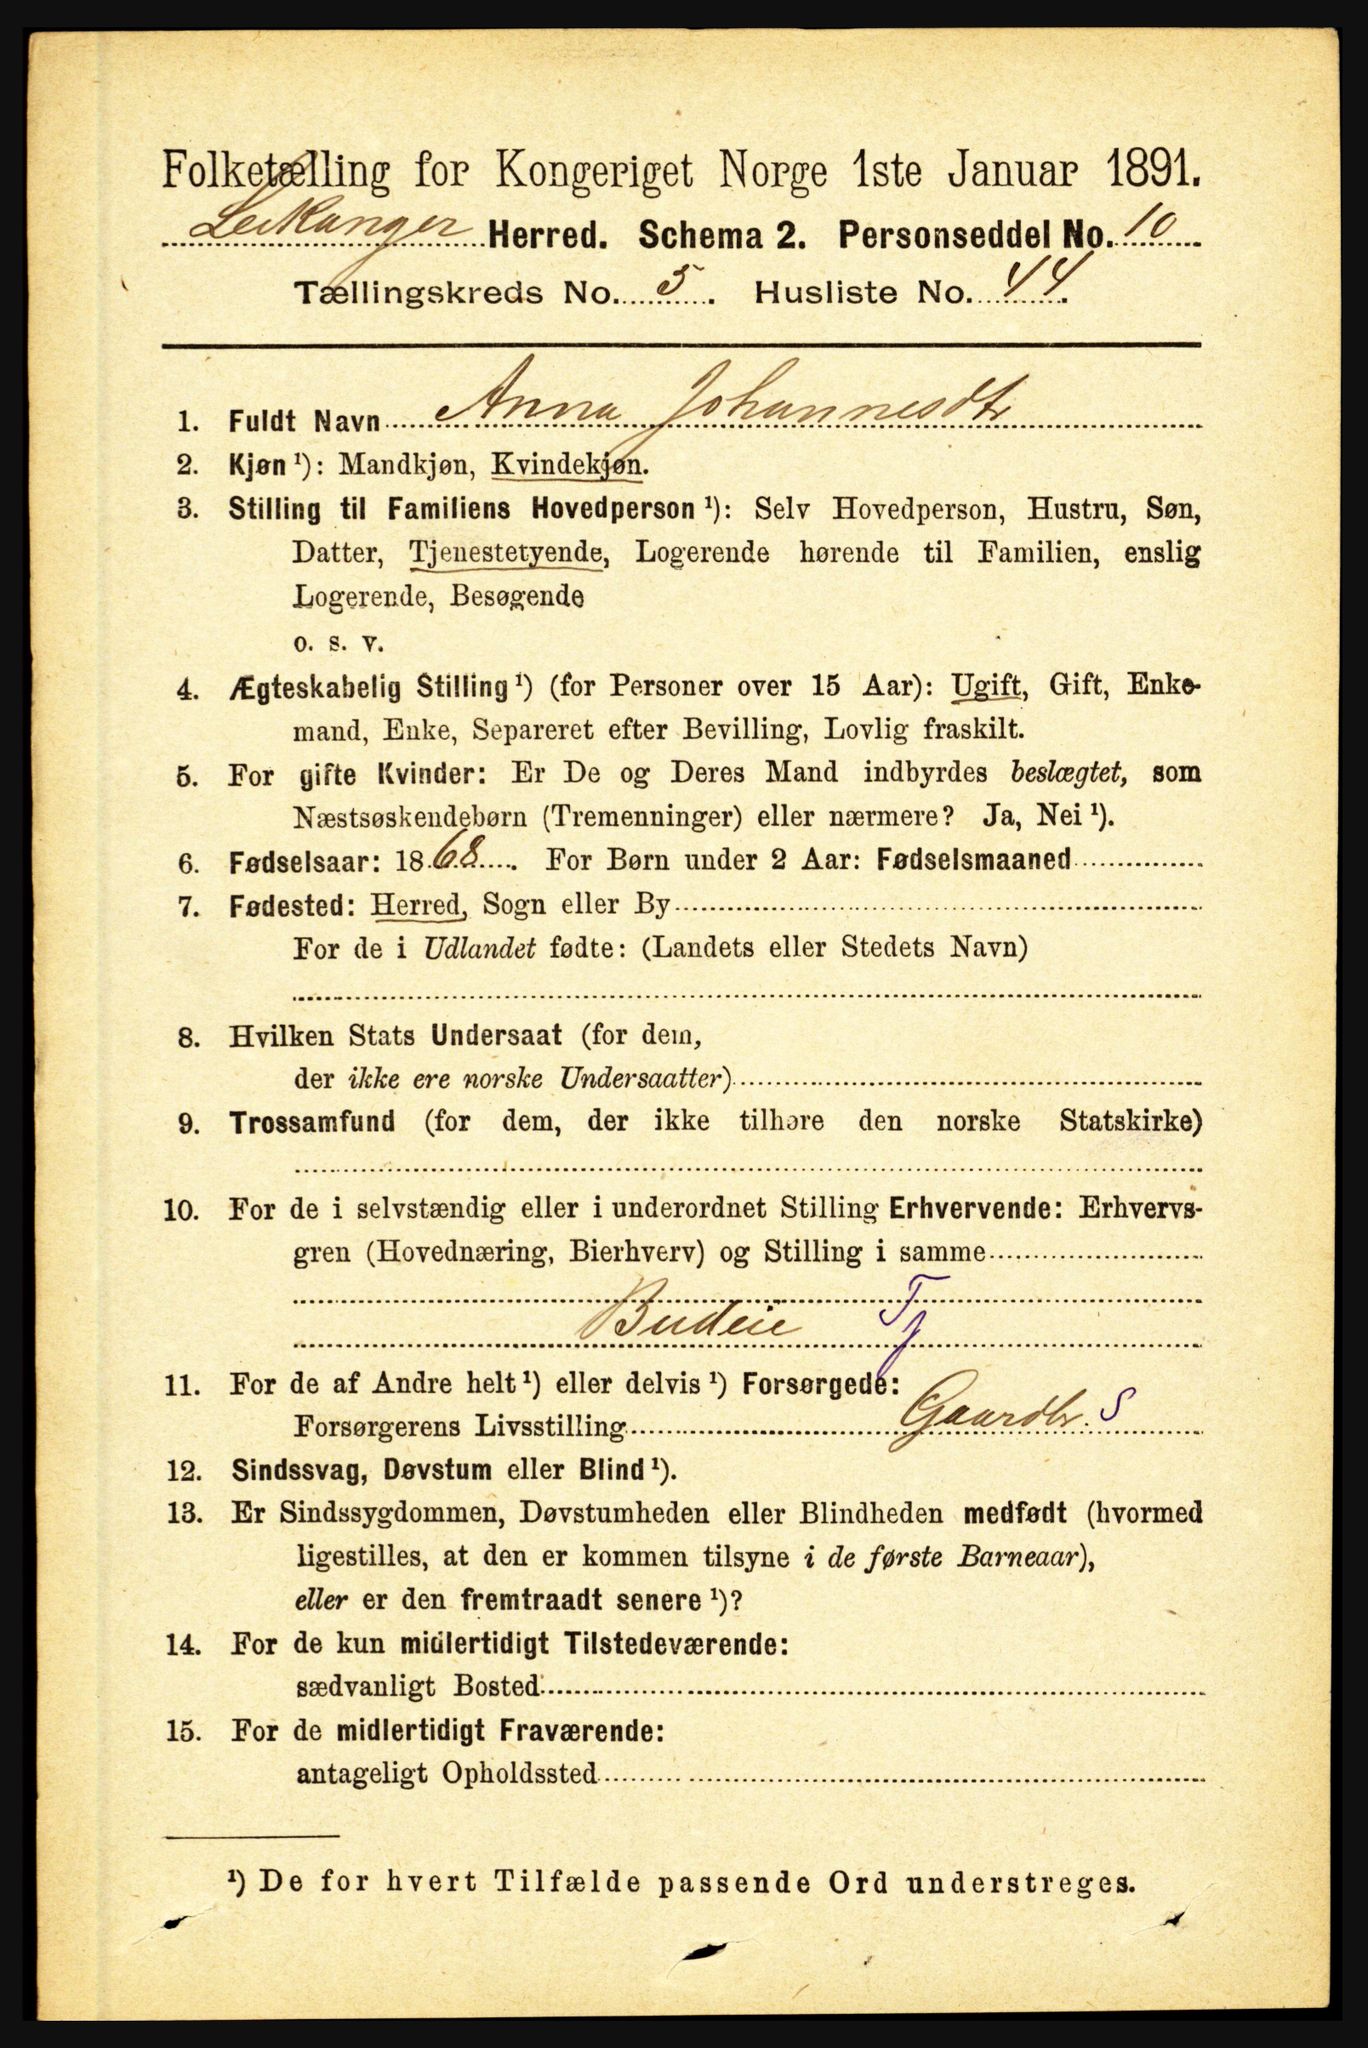 Folketælling for Kongeriget Norge 1ste Januar 1891.
Leikanger Herred. Schema 2. Personseddel No. 10
Tællingskreds No. 5. Husliste No. 44.
1. Fuldt Navn Anna Johannesdtr
2. Kjøn ¹): Mandkjøn, Kvindekjøn.
3. Stilling til Familiens Hovedperson ¹): Selv Hovedperson, Hustru, Søn,
Datter, Tjenestetyende, Logerende hørende til Familien, enslig
Logerende, Besøgende
o. s. v.
4. Ægteskabelig Stilling ¹) (for Personer over 15 Aar): Ugift, Gift, Enke-
mand, Enke, Separeret efter Bevilling, Lovlig fraskilt.
5. For gifte Kvinder: Er De og Deres Mand indbyrdes beslægtet, som
Næstsøskendebørn (Tremenninger) eller nærmere? Ja, Nei ¹).
6. Fødselsaar: 1868. For Børn under 2 Aar: Fødselsmaaned
7. Fødested: Herred, Sogn eller By
For de i Udlandet fødte: (Landets eller Stedets Navn)
8. Hvilken Stats Undersaat (for dem,
der ikke ere norske Undersaatter)
9. Trossamfund (for dem, der ikke tilhøre den norske Statskirke)
10. For de i selvstændig eller i underordnet Stilling Erhvervende: Erhvervs-
gren (Hovednæring, Bierhverv) og Stilling i samme
Budeie Tj
11. For de af Andre helt ¹) eller delvis ¹) Forsørgede:
Forsørgerens Livsstilling Gaardbr. S
12. Sindssvag, Døvstum eller Blind ¹).
13. Er Sindssygdommen, Døvstumheden eller Blindheden medfødt (hvormed
ligestilles, at den er kommen tilsyne i de første Barneaar),
eller er den fremtraadt senere ¹)?
14. For de kun midlertidigt Tilstedeværende:
sædvanligt Bosted
15. For de midlertidigt Fraværende:
antageligt Opholdssted
¹) De for hvert Tilfælde passende Ord understreges.